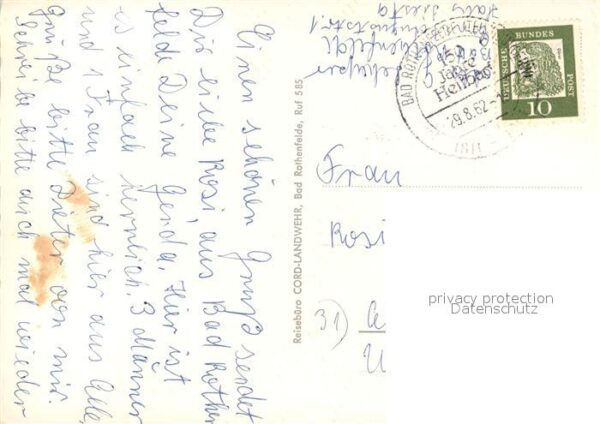 Einen schönen Gruß sendet
Dir liebe Rosi, aus Bad Rothen
felde Deine Gerda. Hier ist
es einfach herrlich. 3 Männer
und 1 Frau sind hier aus Elle,
Grüße bitte Dieter von mir.
Schreibe bitte auch mal wieder
Reisebüro CORD-LANDWEHR, Bad Rothenfelde, Ruf 585
BAD ROTHENFELDE
150
Jahre
Heilbad
29.8.62
DEUTSCHE BUNDES POST
10
Frau
Rosi
31)
privacy protection
Datenschutz